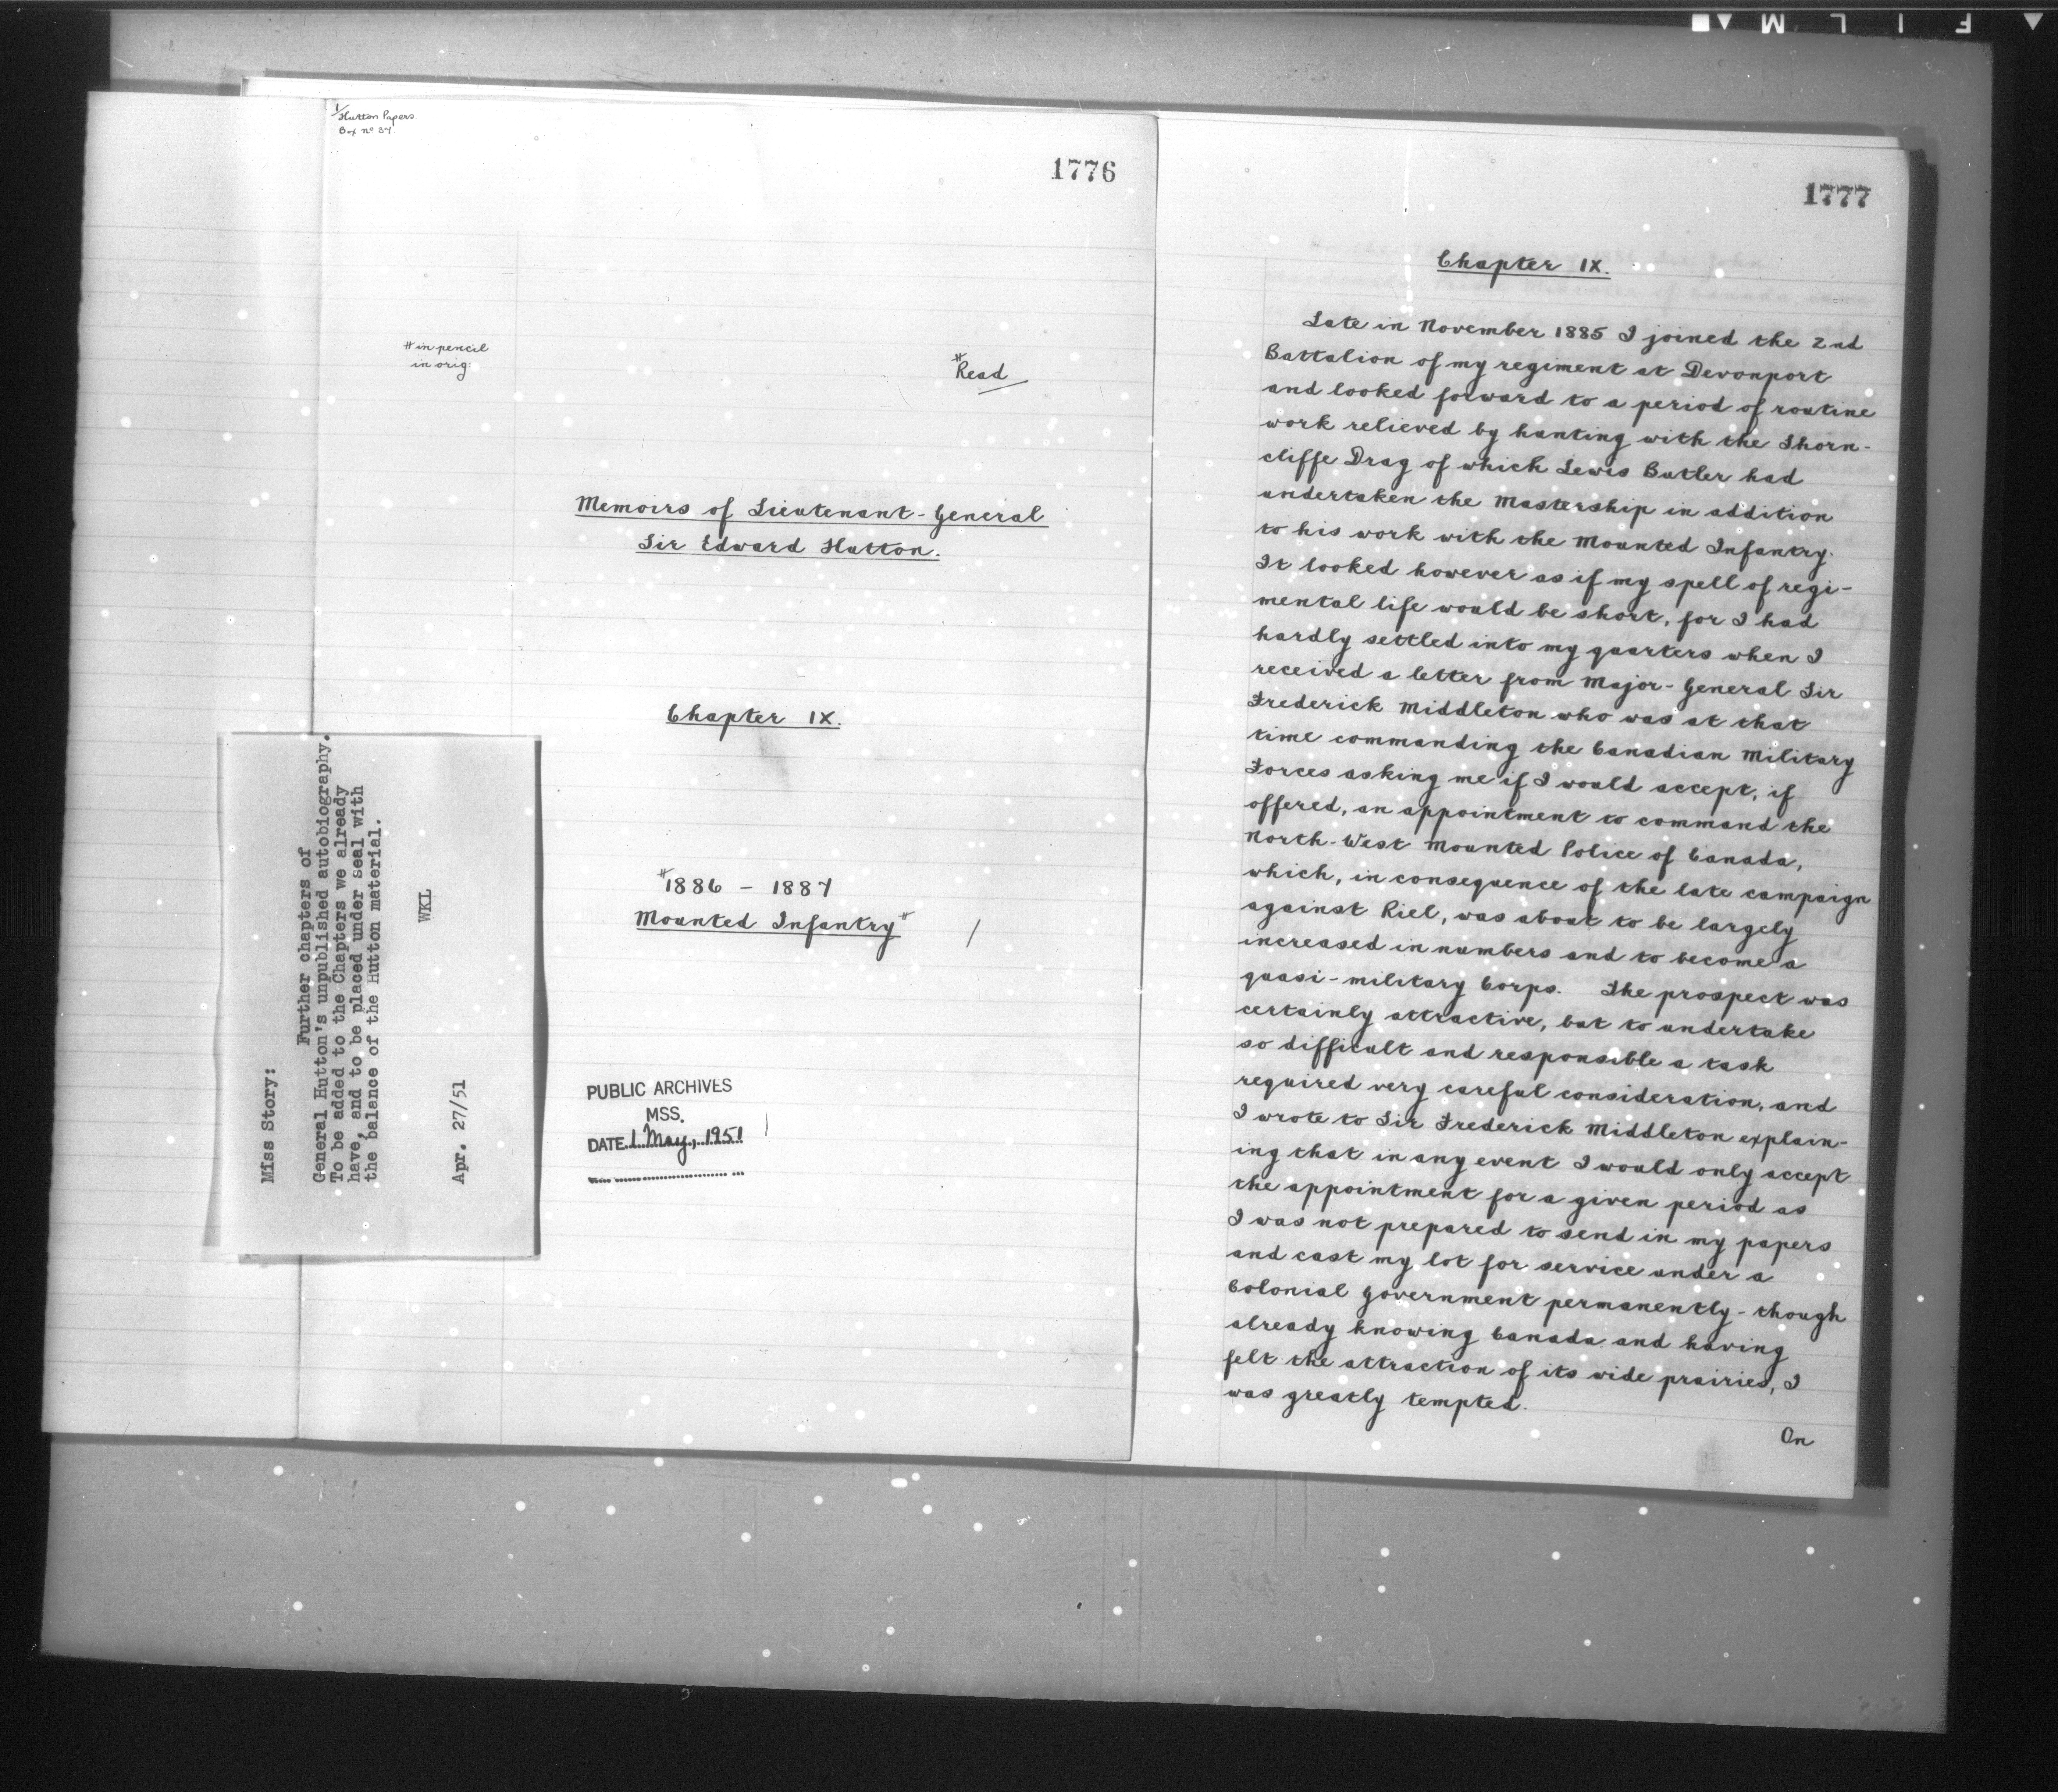 FILM
1/
Hutton Papers
Box nº 34.
1776
# in pencil
in orig.
#
Read
Memoirs of Lieutenant-General
Sir Edward Hutton.
Chapter IX.
#1886 – 1887
Mounted Infantry#
/
PUBLIC ARCHIVES
MSS.
DATE 1 May, 1951
Miss Story:
Further chapters of
General Hutton's unpublished autobiography.
To be added to the Chapters we already
have, and to be placed under seal with
the balance of the Hutton material.
WKL
Apr. 27/51
1777
Chapter IX.
Late in November 1885 I joined the 2nd
Battalion of my regiment at Devonport
and looked forward to a period of routine
work relieved by hunting with the Thorn-
cliffe Drag of which Lewis Butler had
undertaken the Mastership in addition
to his work with the Mounted Infantry.
It looked however as if my spell of regi-
mental life would be short, for I had
hardly settled into my quarters when I
received a letter from Major-General Sir
Frederick Middleton who was at that
time commanding the Canadian Military
Forces asking me if I would accept, if
offered, an appointment to command the
North-West Mounted Police of Canada,
which, in consequence of the late campaign
against Riel, was about to be largely
increased in numbers and to become a
quasi-military Corps. The prospect was
certainly attractive, but to undertake
so difficult and responsible a task
required very careful consideration, and
I wrote to Sir Frederick Middleton explain-
ing that in any event I would only accept
the appointment for a given period as
I was not prepared to send in my papers
and cast my lot for service under a
Colonial Government permanently - though
already knowing Canada and having
felt the attraction of its wide prairies, I
was greatly tempted.
On